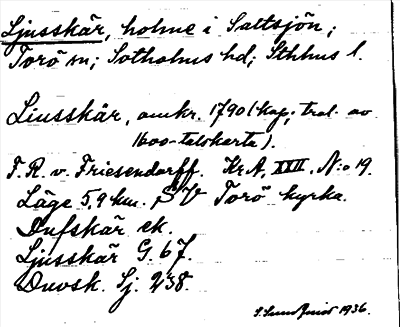 Ljusskär, holme i Saltsjön;
Torö sn; Sotholms hd; Sthlms l.
Liusskär, omkr. 1790 (kop; trol. av
1600-talskarta).
F. R. v. Friesendorff. Kr.A. XXIII. N:o 19.
Läge 5,9 km. SV Torö kyrka.
Dufskär ek.
Ljusskär G. 67.
Duvsk. Sj. 238.
1936.